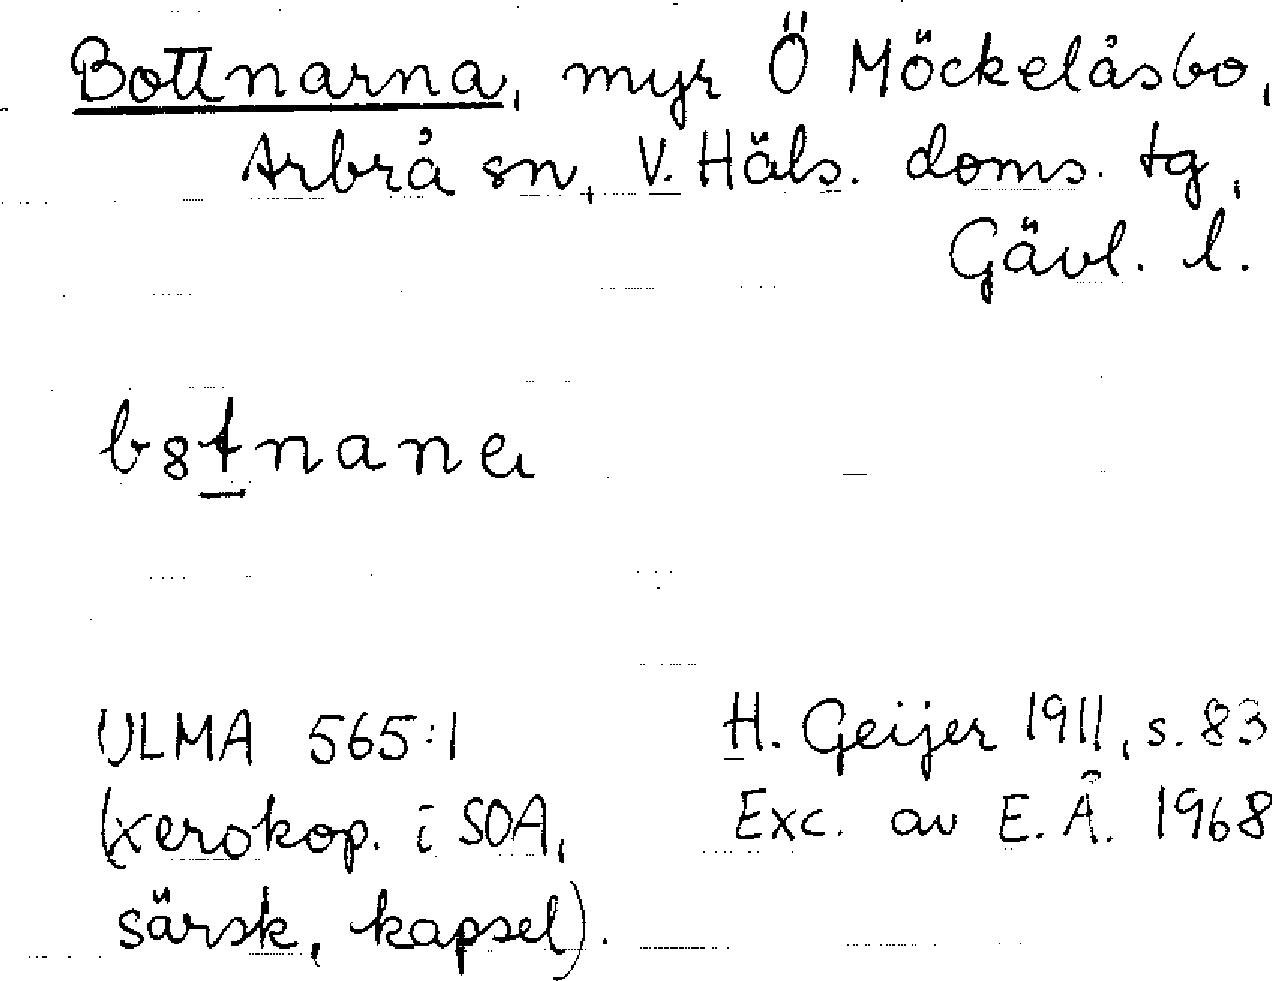 Bottnarna, myr Ö Möckelåsbo,
Arbrå sn, V. Häls. doms. tg,
Gävl. l.
b8tnana
ULMA 565:1
(xerokop. i SOA,
särsk, kapsel).
H. Geijer 1911, s. 83
Exc. av E. Å. 1968